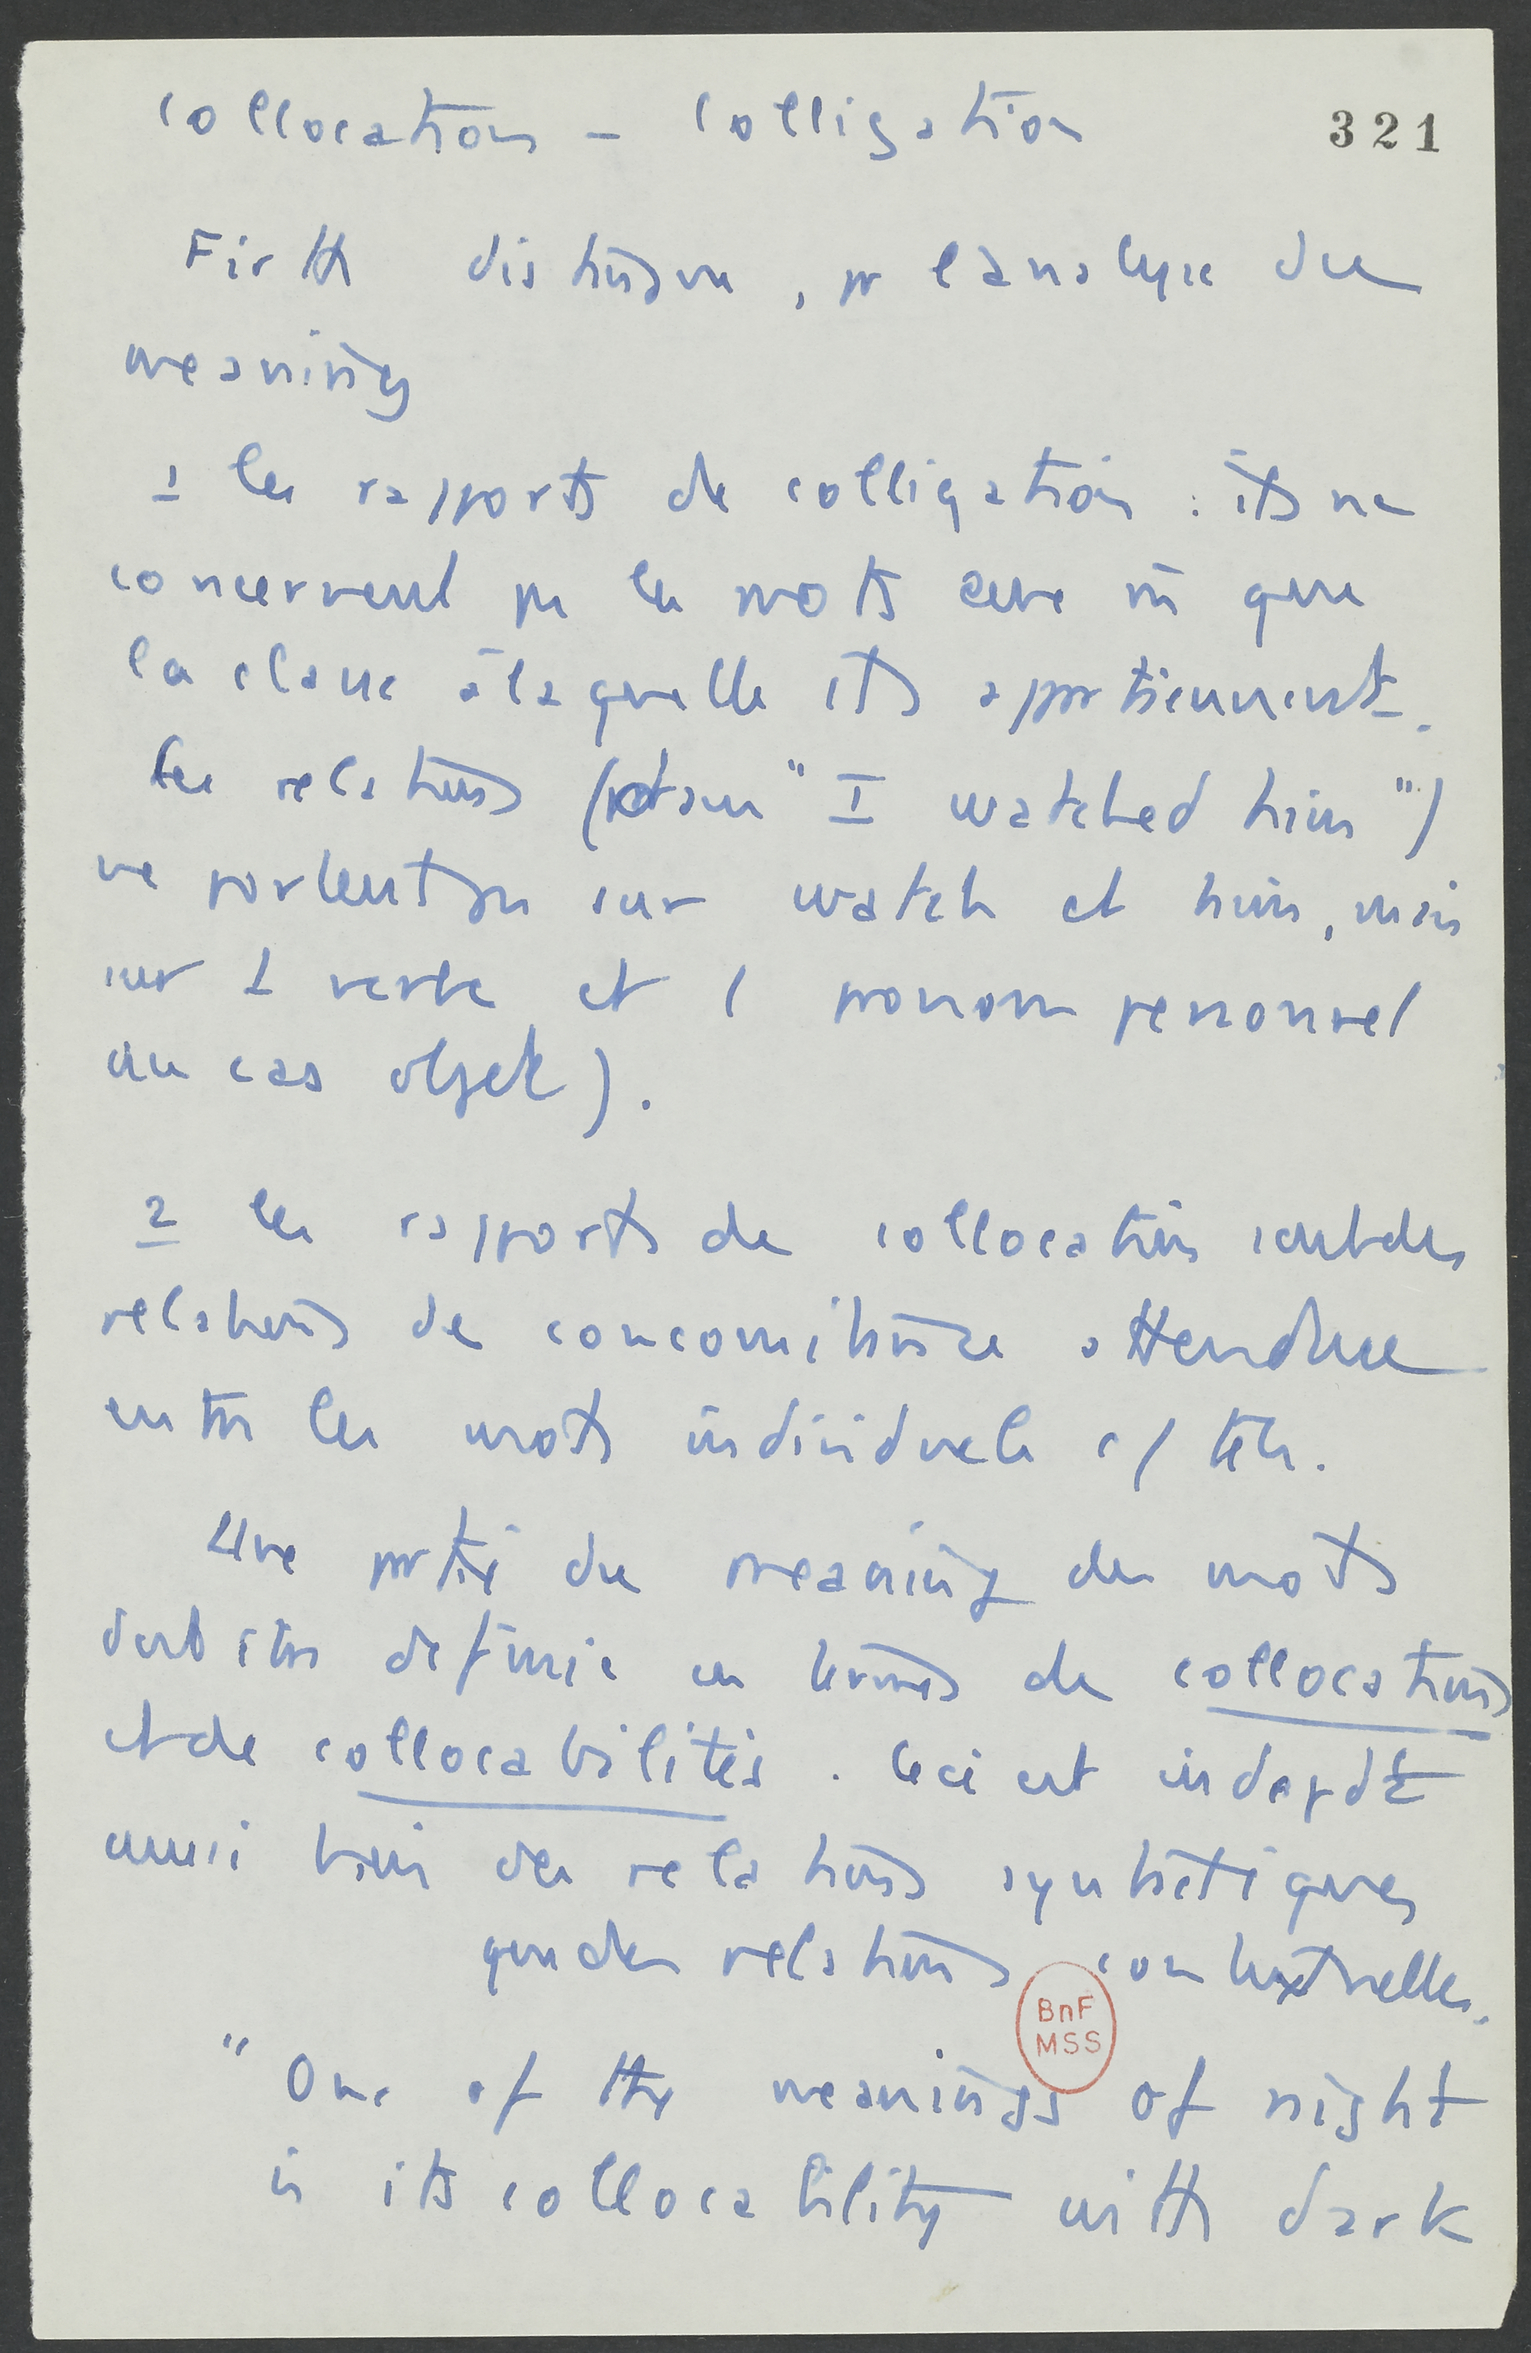 collocation – colligation
321
Firth distingue, pr l'analyse du
meaning
1 les rapports de colligation : ils ne
concernent pas les mots comme tels que
la classe à laquelle ils appartiennent.
les relations (dans "I watched him")
ne portent pas sur watch et him, mais
sur 1 verbe et 1 pronom personnel
au cas objet).
2 les rapports de collocation sont des
relations de concomitance attendue
entre les mots individuels c/ tels.
Une partie du meaning des mots
doit être définie en termes de collocations
et de collocabilités. Ceci est indepdt
aussi bien des relations synthétiques
que des relations contextuelles.
BnF
MSS
"One of the meanings of night
is its collocability with dark